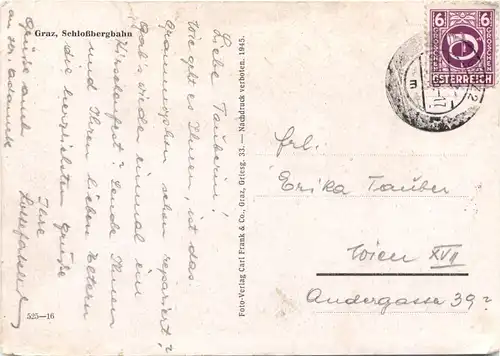 Graz, Schloßbergbahn
Liebe Tauberin!
Wie geht es Ihnen, ist das
Grammophon schon repariert?
Gab's wieder einmal ein
Sende Ihnen
und Ihren lieben Eltern
die herzlichsten Grüße
Ihre
Grüße auch
525—16
Foto-Verlag Carl Frank & Co., Graz, Griesg. 33. — Nachdruck verboten. 1945.
6 6
ÖSTERREICH
Frl.
Erika Tauber
Wien XVII
Andergasse 39?